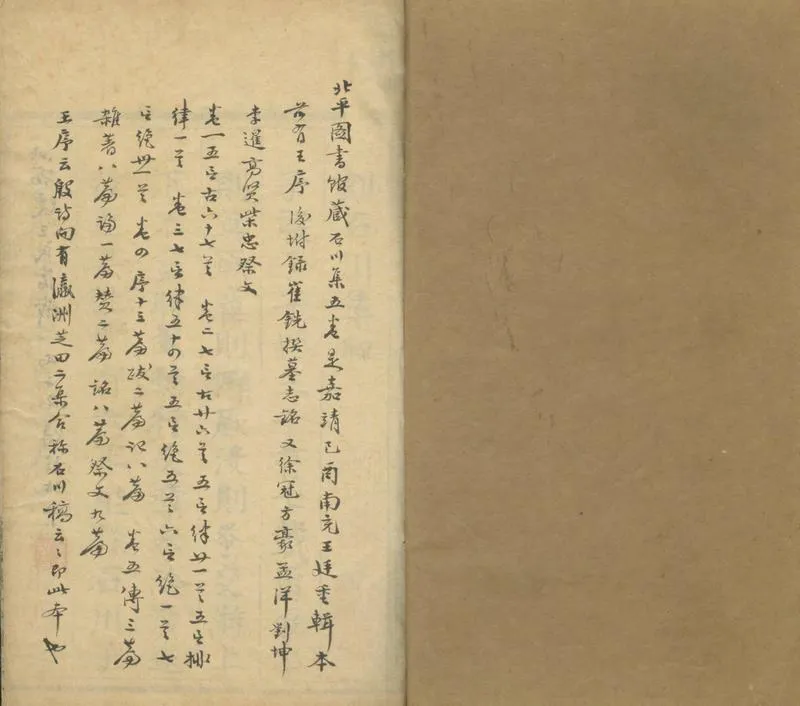 北平圖書館藏石川集五卷是嘉靖己酉南充王廷重輯本
前有王序後坿錄崔銑撰墓志銘又徐冠方豪孟洋劉坤
李暹高賢柴忠祭文
卷一五言古六十七首　卷二七言古廿六首五言律廿一首五言排
律一首　卷三七言律五十四首五言絕五首六言絕一首七
言絕卅一首　卷四序十三篇跋二篇記八篇　卷五傳三篇
雜著八篇論一篇贊二篇銘八篇祭文九篇
王序云殷詩向有瀛洲芝田二集合称石川稿云〻即此本也